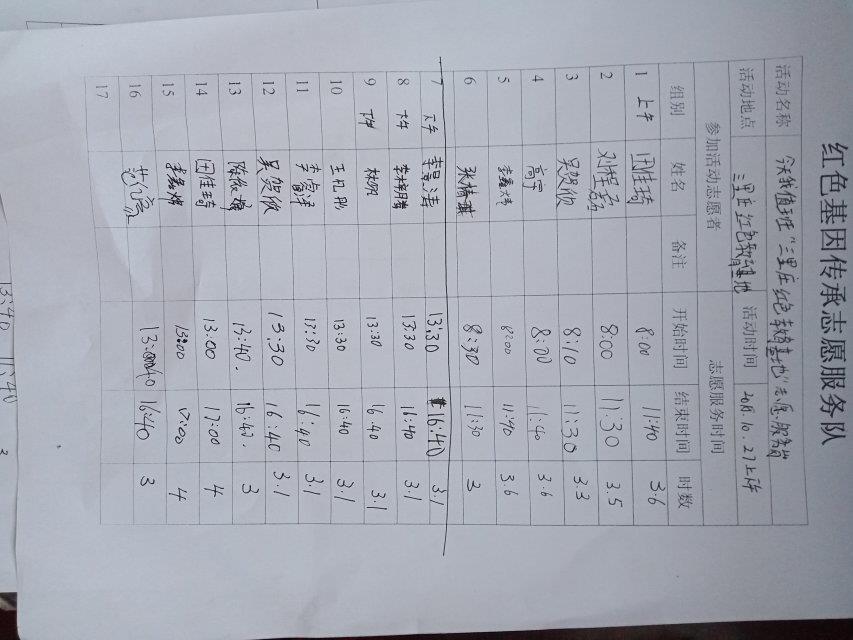 红色基因传承志愿服务队
活动名称 今天我值班“三里庄红色教育基地”志愿服务岗
活动地点 三里庄红色教育基地 活动时间 2018.10.27上午
参加活动志愿者 志愿服务时间
组别 姓名 备注 开始时间 结束时间 时数
1 上午 田佳琦 8:00 11:40 3.6
2 8:00 11:30 3.5
3 吴贺欣 8:10 11:30 3.3
4 高宇 8:00 11:40 3.6
5 8:00 11:40 3.6
6 8:30 11:30 3
7 下午 李昊涛 13:30 16:40 3.1
8 下午 13:30 16:40 3.1
9 下午 13:30 16:40 3.1
10 13:30 16:40 3.1
11 李富泽 13:30 16:40 3.1
12 吴贺欣 13:30 16:40 3.1
13 13:40. 16:40. 3
14 田佳琦 13:00 17:00 4
15 13:00 17:00 4
16 13:40 16:40 3
17
13:40 11:40 3